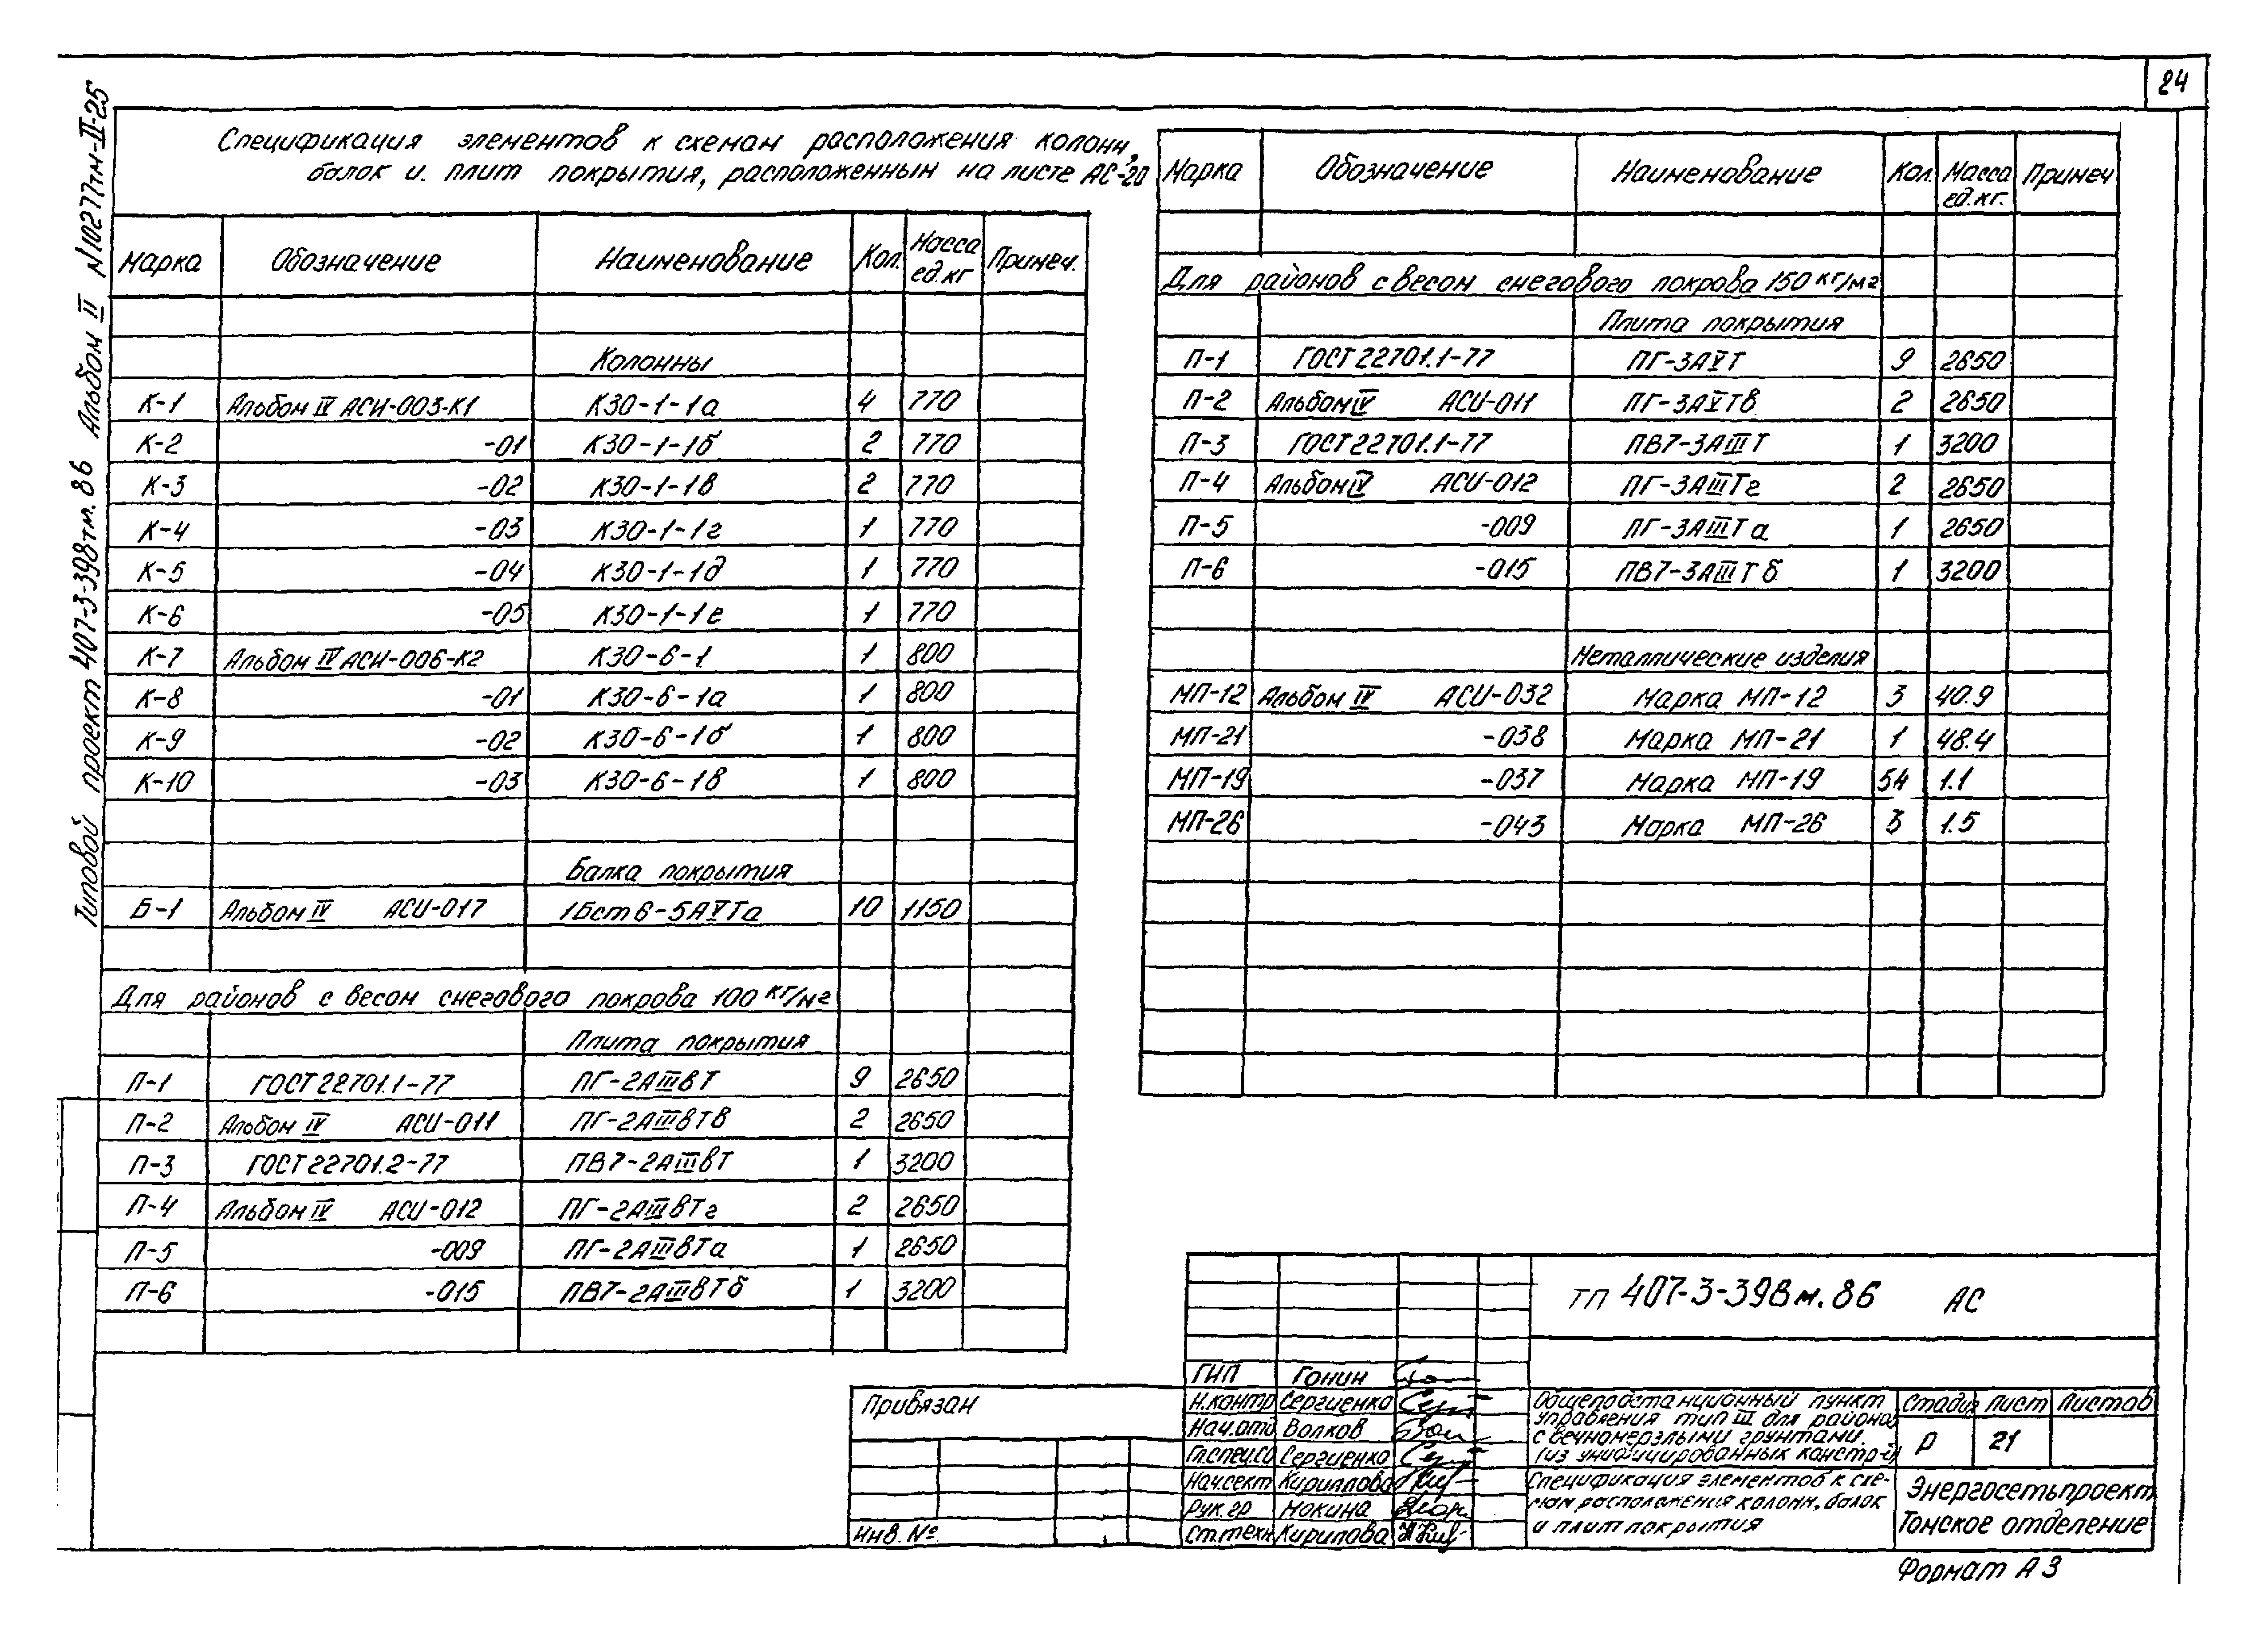 24
Типовой проект 407-3-398тм.86 Альбом II N10277тм-II-25
Спецификация элементов к схемам расположения колонн,
балок и плит покрытия, расположенным на листе АС-20
Марка Обозначение Наименование Кол. Масса ед.кг Примеч.
Колонны
К-1 Альбом IV АСИ-003-К1 К30-1-1а 4 770
К-2 -01 К30-1-1б 2 770
К-3 -02 К30-1-1в 2 770
К-4 -03 К30-1-1г 1 770
К-5 -04 К30-1-1д 1 770
К-6 -05 К30-1-1е 1 770
К-7 Альбом IV АСИ-006-К2 К30-6-1 1 800
К-8 -01 К30-6-1а 1 800
К-9 -02 К30-6-1б 1 800
К-10 -03 К30-6-1в 1 800
Балка покрытия
Б-1 Альбом IV АСИ-017 1Бст6-5АVТа 10 1150
Для районов с весом снегового покрова 100 кг/м2
Плита покрытия
П-1 ГОСТ 22701.1-77 ПГ-2АIIIвТ 9 2650
П-2 Альбом IV АСИ-011 ПГ-2АIIIвТв 2 2650
П-3 ГОСТ 22701.2-77 ПВ7-2АIIIвТ 1 3200
П-4 Альбом IV АСИ-012 ПГ-2АIIIвТг 2 2650
П-5 -009 ПГ-2АIIIвТа 1 2650
П-6 -015 ПВ7-2АIIIвТб 1 3200
Марка Обозначение Наименование Кол. Масса ед.кг. Примеч
Для районов с весом снегового покрова 150 кг/м2
Плита покрытия
П-1 ГОСТ 22701.1-77 ПГ-3АVТ 9 2650
П-2 Альбом IV АСИ-011 ПГ-3АVТв 2 2650
П-3 ГОСТ 22701.1-77 ПВ7-3АIIIТ 1 3200
П-4 Альбом IV АСИ-012 ПГ-3АIIIТг 2 2650
П-5 -009 ПГ-3АIIIТа 1 2650
П-6 -015 ПВ7-3АIIIТб 1 3200
Металлические изделия
МП-12 Альбом IV АСИ-032 Марка МП-12 3 40.9
МП-21 -038 Марка МП-21 1 48.4
МП-19 -037 Марка МП-19 54 1.1
МП-26 -043 Марка МП-26 3 1.5
ТП 407-3-398м.86 АС
Привязан
Инв. №
ГИП Гонин
Н.контр Сергиенко
Нач.отд Волков
Гл.спец.со Сергиенко
Нач.сект Кириллова
Рук.гр Мокина
Ст.техн Кирилова
Общеподстанционный пункт
управления тип III для районов
с вечномерзлыми грунтами.
(из унифицированных констр-й)
Стадия Лист Листов
Р 21
Спецификация элементов к схе-
мам расположения колонн, балок
и плит покрытия
Энергосетьпроект
Томское отделение
Формат А3